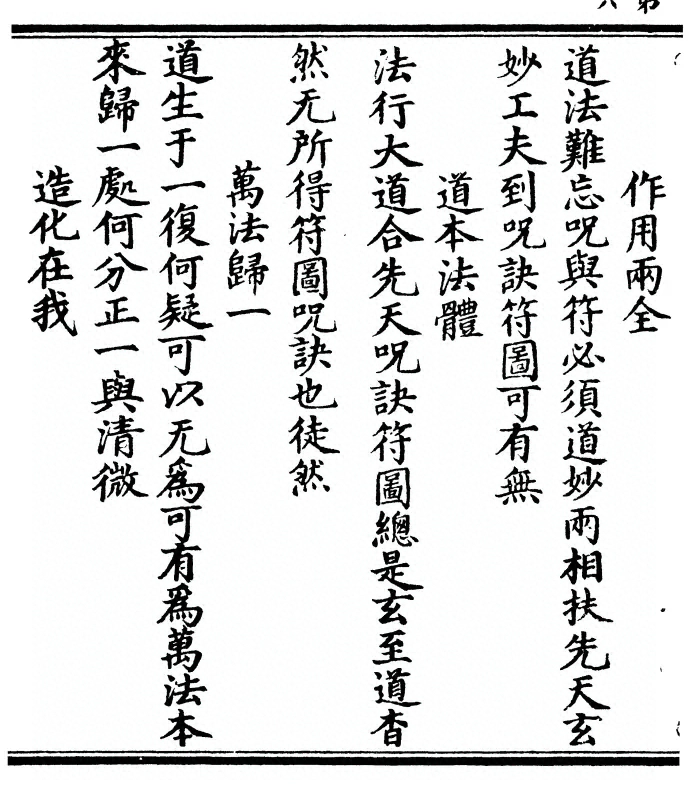 作用兩全
道法難忘呪與符必須道妙兩相扶先天玄
妙工夫到呪訣符圖可有無
道本法體
法行大道合先天呪訣符圖總是玄至道杳
然无所得符圖呪訣也徒然
萬法歸一
道生于一復何疑可以无為可有為萬法本
來歸一處何分正一與清微
造化在我